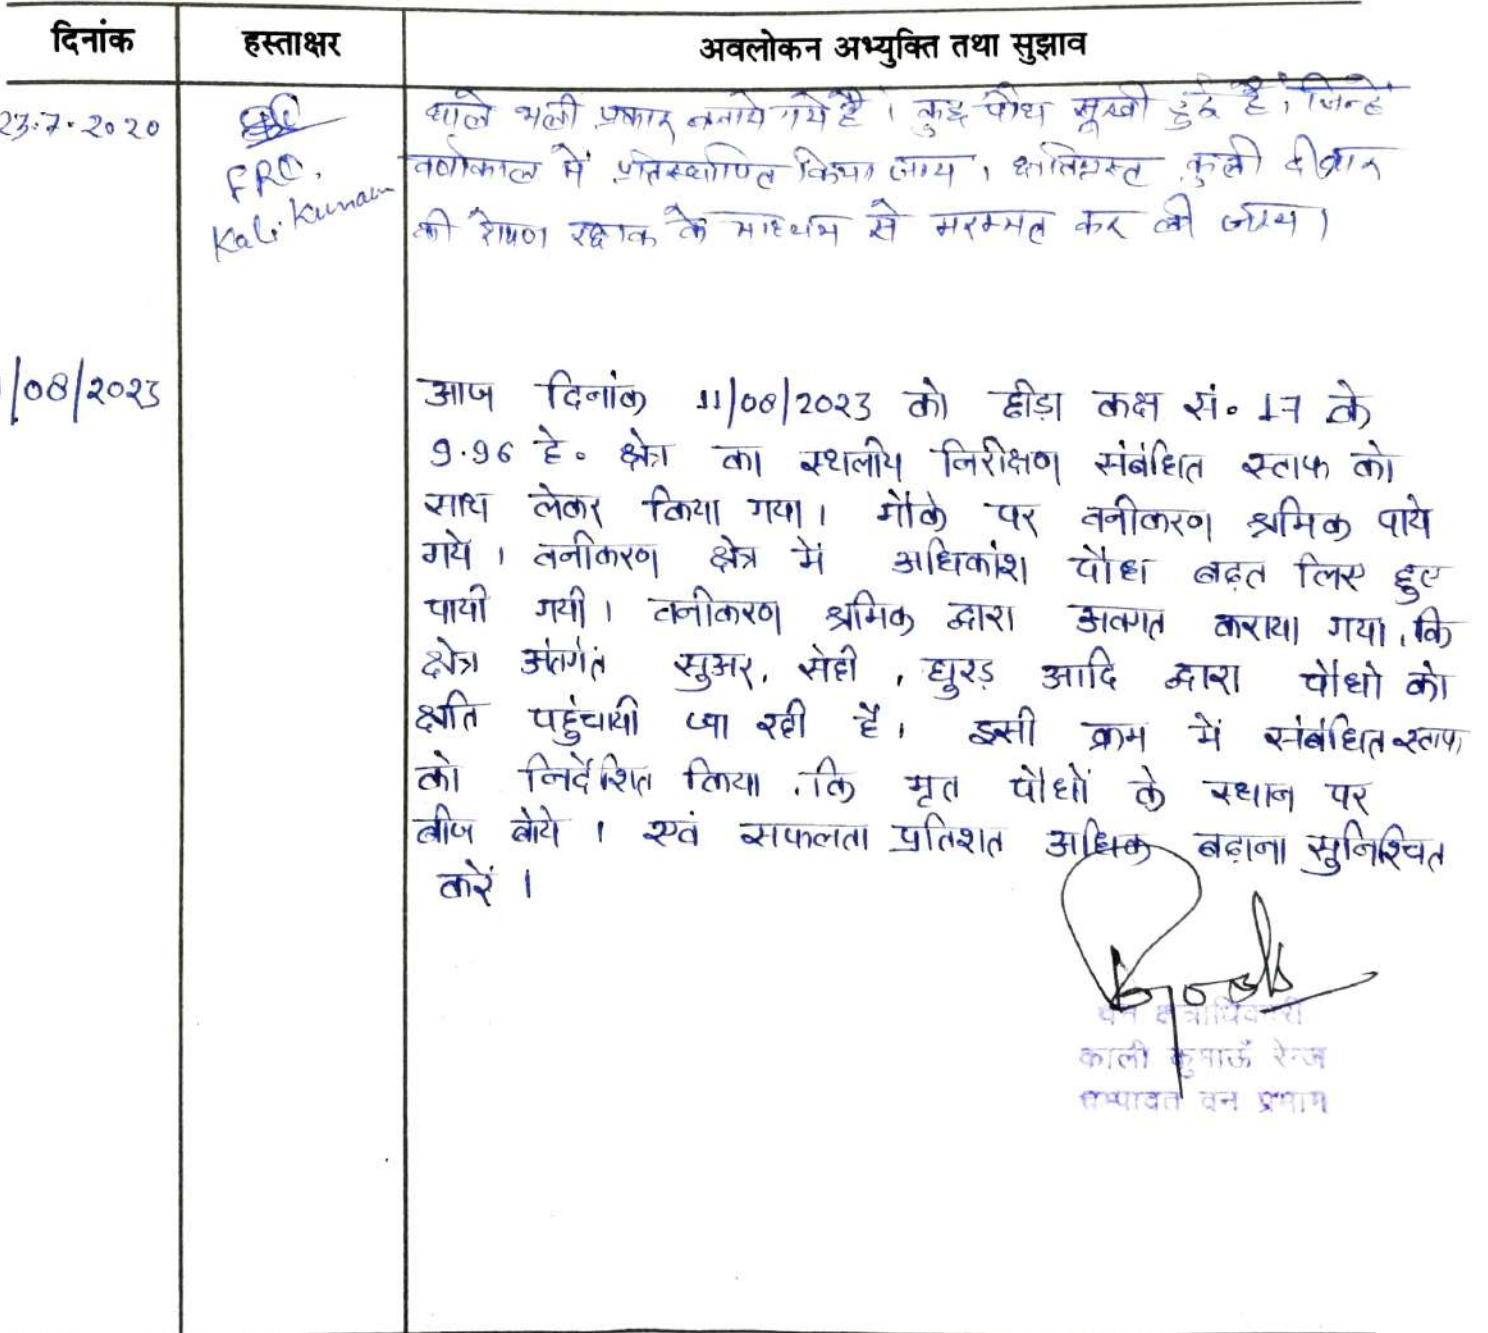 दिनांक हस्ताक्षर अवलोकन अभ्युक्ति तथा सुझाव
23.7.2020
FRO,
Kali Kumaun
थाले भली प्रकार बनाये गये है। कुछ पौध सूखी हुई है, जिन्हे
वर्षाकाल में प्रतिस्थापित किया जाय। क्षतिग्रस्त दीवार
की रोपण रक्षक के माध्यम से मरम्मत कर ली जाय।
/08/2023
आज दिनांक 11/08/2023 को हीडा कक्ष सं० 17 के
9.96 हे० क्षेत्र का स्थलीय निरीक्षण संबंधित स्टाफ को
साथ लेकर किया गया। मौके पर वनीकरण श्रमिक पाये
गये। वनीकरण क्षेत्र में अधिकांश पौध बढ़त लिए हुए
पायी गयी। वनीकरण श्रमिक द्वारा अवगत कराया गया, कि
क्षेत्र अंतर्गत सुअर, सेही, घुरड़ आदि द्वारा पौधो को
क्षति पहुंचायी जा रही है। इसी क्रम में संबंधित स्टाफ
को निर्देशित किया, कि मृत पौधों के स्थान पर
बीज बोये। एवं सफलता प्रतिशत अधिक बढ़ाना सुनिश्चित
करें।
वन क्षेत्राधिकारी
काली कुमाऊँ रेन्ज
चम्पावत वन प्रभाग